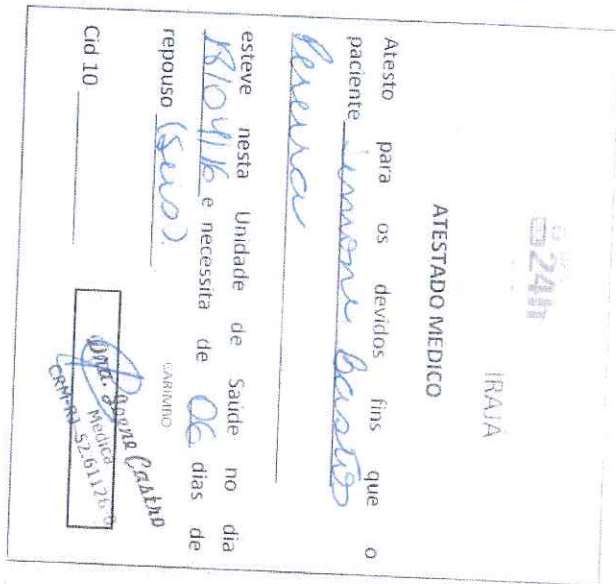 24h
IRAJA
ATESTADO MEDICO
Atesto para os devidos fins que o
paciente Simone Bastos
Pereira
esteve nesta Unidade de Saúde no dia
18/04/16 e necessita de 06 dias de
repouso (Seis).
CARIMBO
Cid 10
Dra. Castro
Medica
CRM-RJ